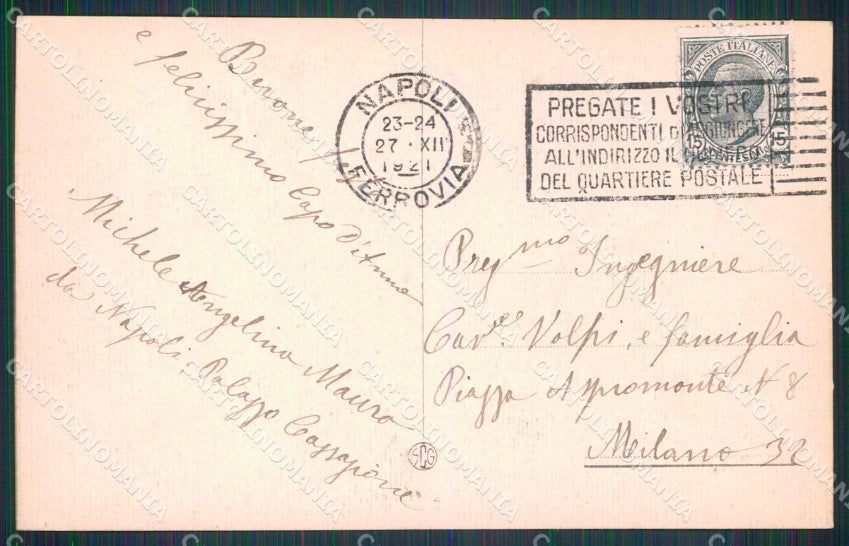 Buone feste
e felicissimo Capo d'Anno
Michele Angelina Mauro
da Napoli. Palazzo
NAPOLI
23-24
27 · XII
1921
FERROVIA
PREGATE I VOSTRI
CORRISPONDENTI DI AGGIUNGERE
ALL'INDIRIZZO IL
DEL QUARTIERE POSTALE
POSTE ITALIANE
15 15
CENTESIMI
Preg mo Ingegniere
Cav. Volpi, e famiglia
Piazza Aspromonte N 8
Milano 32
SCG
CARTOLINOMANIA